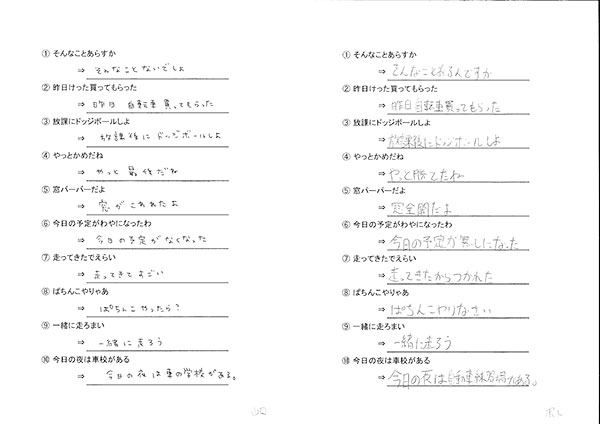 ① そんなことあらすか
⇒ そんなことないでしょ
② 昨日けった買ってもらった
⇒ 昨日 自転車 買ってもらった
③ 放課にドッジボールしよ
⇒ 放課後に ドッジボールしよ
④ やっとかめだね
⇒ やっと 最後だね
⑤ 窓パーパーだよ
⇒ 窓が これれたよ
⑥ 今日の予定がわやになったわ
⇒ 今日の予定がなくなった
⑦ 走ってきたでえらい
⇒ 走ってきて すごい
⑧ ぱちんこやりゃあ
⇒ ぱちんこ やったら？
⑨ 一緒に走ろまい
⇒ 一緒に走ろう
⑩ 今日の夜は車校がある
⇒ 今日の夜は車の学校がある。
① そんなことあらすか
⇒ そんなことあるんですか
② 昨日けった買ってもらった
⇒ 昨日自転車買ってもらった
③ 放課にドッジボールしよ
⇒ 放課後にドッジボールしよ
④ やっとかめだね
⇒ やっと勝てたね
⑤ 窓パーパーだよ
⇒ 窓全開だよ
⑥ 今日の予定がわやになったわ
⇒ 今日の予定が無しになった
⑦ 走ってきたでえらい
⇒ 走ってきたからつかれた
⑧ ぱちんこやりゃあ
⇒ ぱちんこやりなさい
⑨ 一緒に走ろまい
⇒ 一緒に走ろう
⑩ 今日の夜は車校がある
⇒ 今日の夜は自動車練習場がある。